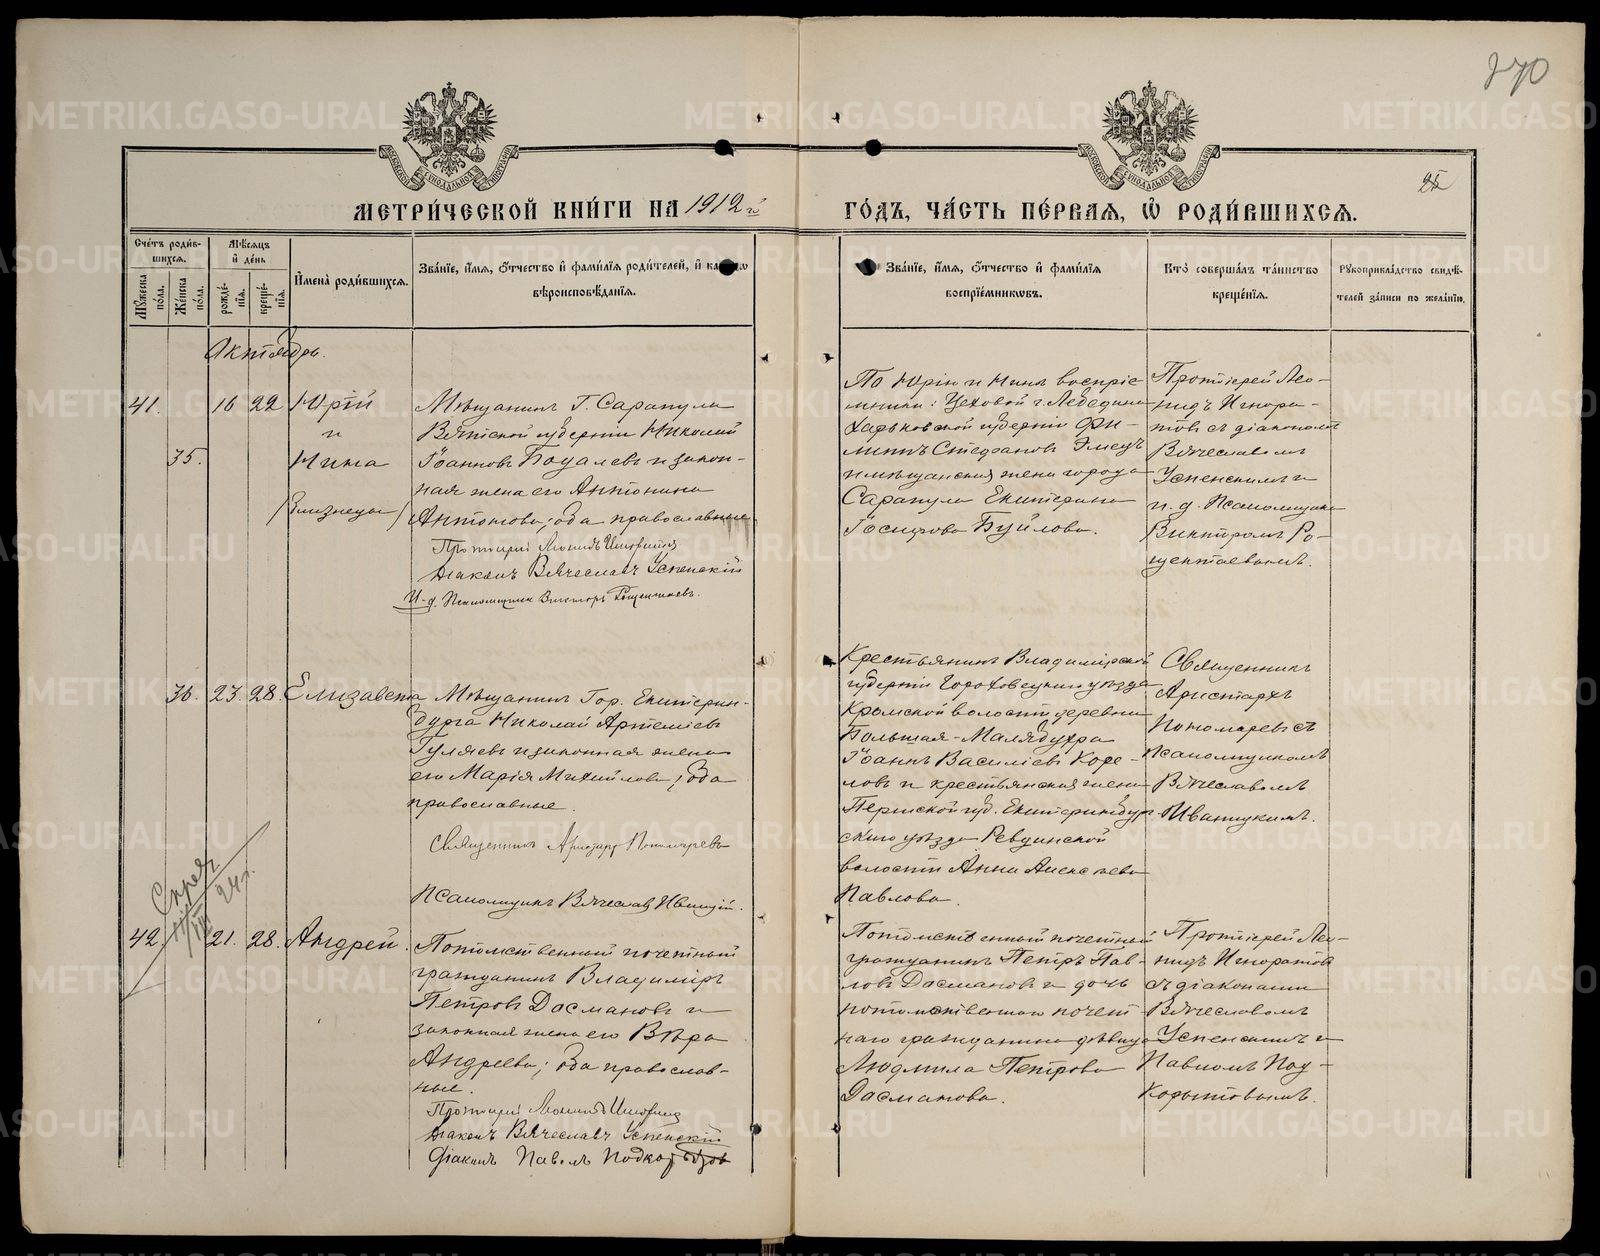 270
25
МЕТРИ́ЧЕСКОЙ КНИ́ГИ НА 1912 й
ГО́ДЪ, ЧА́СТЬ ПЕ́РВАЯ, Ѡ҆ РОДИ́ВШИХСЯ.
Сче́тъ роди́вшихся.
Му́жеска по́ла.
Же́нска по́ла.
Мѣ́сяцъ и҆ де́нь
рожде́нїя.
креще́нїя.
И҆мена̀ роди́вшихся.
Зва́нїе, и҆́мя, ѻ҆́тчество и҆ фами́лїя роди́телей, и҆
вѣроисповѣ́данїя.
Зва́нїе, и҆́мя, ѻ҆́тчество и҆ фами́лїя
воспрїе́мниковъ.
Кто̀ соверша́лъ та́инство
креще́нїя.
Рꙋкоприкла́дство свидѣ́-
телей за́писи по жела́нїю.
Октябрь.
41. 16 22 Юрій
и
35. Нина
/Близнецы/
Мѣщанинъ г. Сарапула
Вятской губерніи Николай
Іоанновъ Бодалевъ и закон-
ная жена его Антонина
Антонова; оба православные
Протоіерей Леонидъ Игноратовъ
Діаконъ Вячеславъ Успенскій
И. д. Псаломщика Викторъ
По Юрію и Нинѣ воспріе-
мники: Цеховой г. Лебедина
Харьковской губерніи Фи-
липпъ Стефановъ Элецъ
и мѣщанская жена города
Сарапула Екатерина
Буйлова.
Протоіерей Лео-
нидъ Игнора-
товъ съ діакономъ
Вячеславомъ
Успенскимъ и
и. д. Псаломщика
Викторомъ Ро-
щектаевымъ.
36. 23. 28. Елизавета
Мѣщанинъ гор. Екатерин-
бурга Николай Артеміевъ
Гуляевъ и законная жена
его Марія Михайлова; оба
православные.
Священникъ Аристархъ Пономаревъ
Псаломщикъ Вячеславъ Иваницкій.
Крестьянинъ Владимірской
губерніи Гороховецкаго уѣзда
Кромской волости деревни
Большая-Малябухра
Іоаннъ Василіевъ Коре-
ловъ и крестьянская жена
Пермской губ. Екатеринбур-
скаго уѣзда Ревдинской
волости Анна Алексѣева
Павлова.
Священникъ
Аристархъ
Пономаревъ съ
псаломщикомъ
Вячеславомъ
Иваницкимъ.
24 г.
42. 21. 28. Андрей.
Потомственный почетный
гражданинъ Владиміръ
Петровъ Дасмановъ и
законная жена его Вѣра
Андреева; оба православ-
ные.
Протоіерей Леонидъ Игноратовъ
Діаконъ Вячеславъ Успенскій
Діаконъ Павелъ Подкорытовъ
Потомственный почетный
гражданинъ Петръ Пав-
ловъ Дасмановъ и дочь
потомственнаго почет-
наго гражданина дѣвица
Людмила Петрова
Дасманова.
Протоіерей Лео-
нидъ Игноратовъ
съ діаконами
Вячеславомъ
Успенскимъ и
Павломъ Под-
корытовымъ.
METRIKI.GASO-URAL.RU